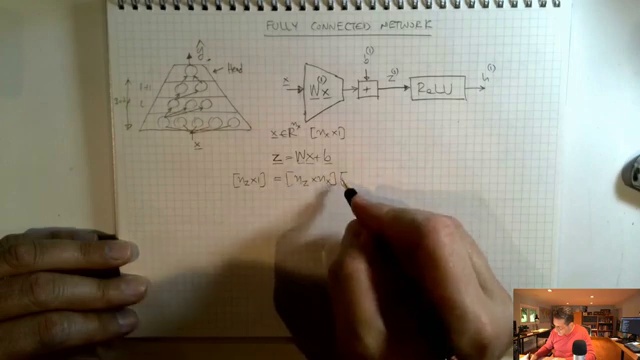 FULLY CONNECTED NETWORK
ŷ
Head
l+1
l
x
x
W⁽¹⁾x
b⁽¹⁾
+
z⁽¹⁾
ReLU
h⁽¹⁾
x ∈ ℝⁿˣ [nₓ×1]
z = Wx + b
[n_z×1] = [n_z × nₓ] [